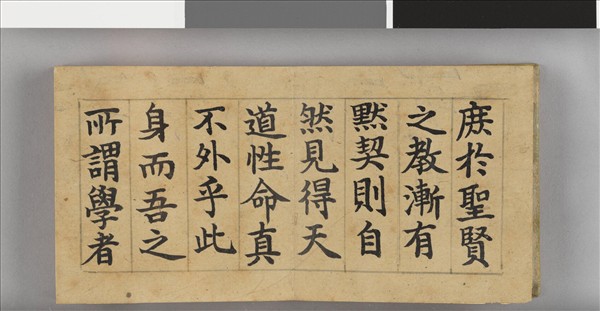 庶於聖賢
之教漸有
黙契則自
然見得天
道性命真
不外乎此
身而吾之
所謂學者